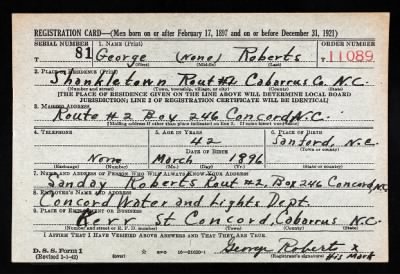 REGISTRATION CARD—(Men born on or after February 17, 1897 and on or before December 31, 1921)
SERIAL NUMBER 1. NAME (Print) ORDER NUMBER
T 81 George (None) Roberts T 11089
(First) (Middle) (Last)
2. PLACE OF RESIDENCE (Print)
Shankletown Rout #2 Cabarrus Co. N.C.
(Number and street) (Town, township, village, or city) (County) (State)
[THE PLACE OF RESIDENCE GIVEN ON THE LINE ABOVE WILL DETERMINE LOCAL BOARD
JURISDICTION; LINE 2 OF REGISTRATION CERTIFICATE WILL BE IDENTICAL]
3. MAILING ADDRESS
Route #2 Box 246 Concord, N.C.
[Mailing address if other than place indicated on line 2. If same insert word same]
4. TELEPHONE 5. AGE IN YEARS 6. PLACE OF BIRTH
42 Sanford, N.C.
DATE OF BIRTH (Town or county)
None March 1896
(Exchange) (Number) (Mo.) (Day) (Yr.) (State or country)
7. NAME AND ADDRESS OF PERSON WHO WILL ALWAYS KNOW YOUR ADDRESS
Sanday Roberts Rout #2, Box 246 Concord, N.C.
8. EMPLOYER'S NAME AND ADDRESS
Concord Water and Lights Dept.
9. PLACE OF EMPLOYMENT OR BUSINESS
Kerr St Concord, Cabarrus N.C.
(Number and street or R. F. D. number) (Town) (County) (State)
I AFFIRM THAT I HAVE VERIFIED ABOVE ANSWERS AND THAT THEY ARE TRUE.
George Roberts x
D. S. S. Form 1
(Revised 1-1-42) (Registrant's signature) His Mark